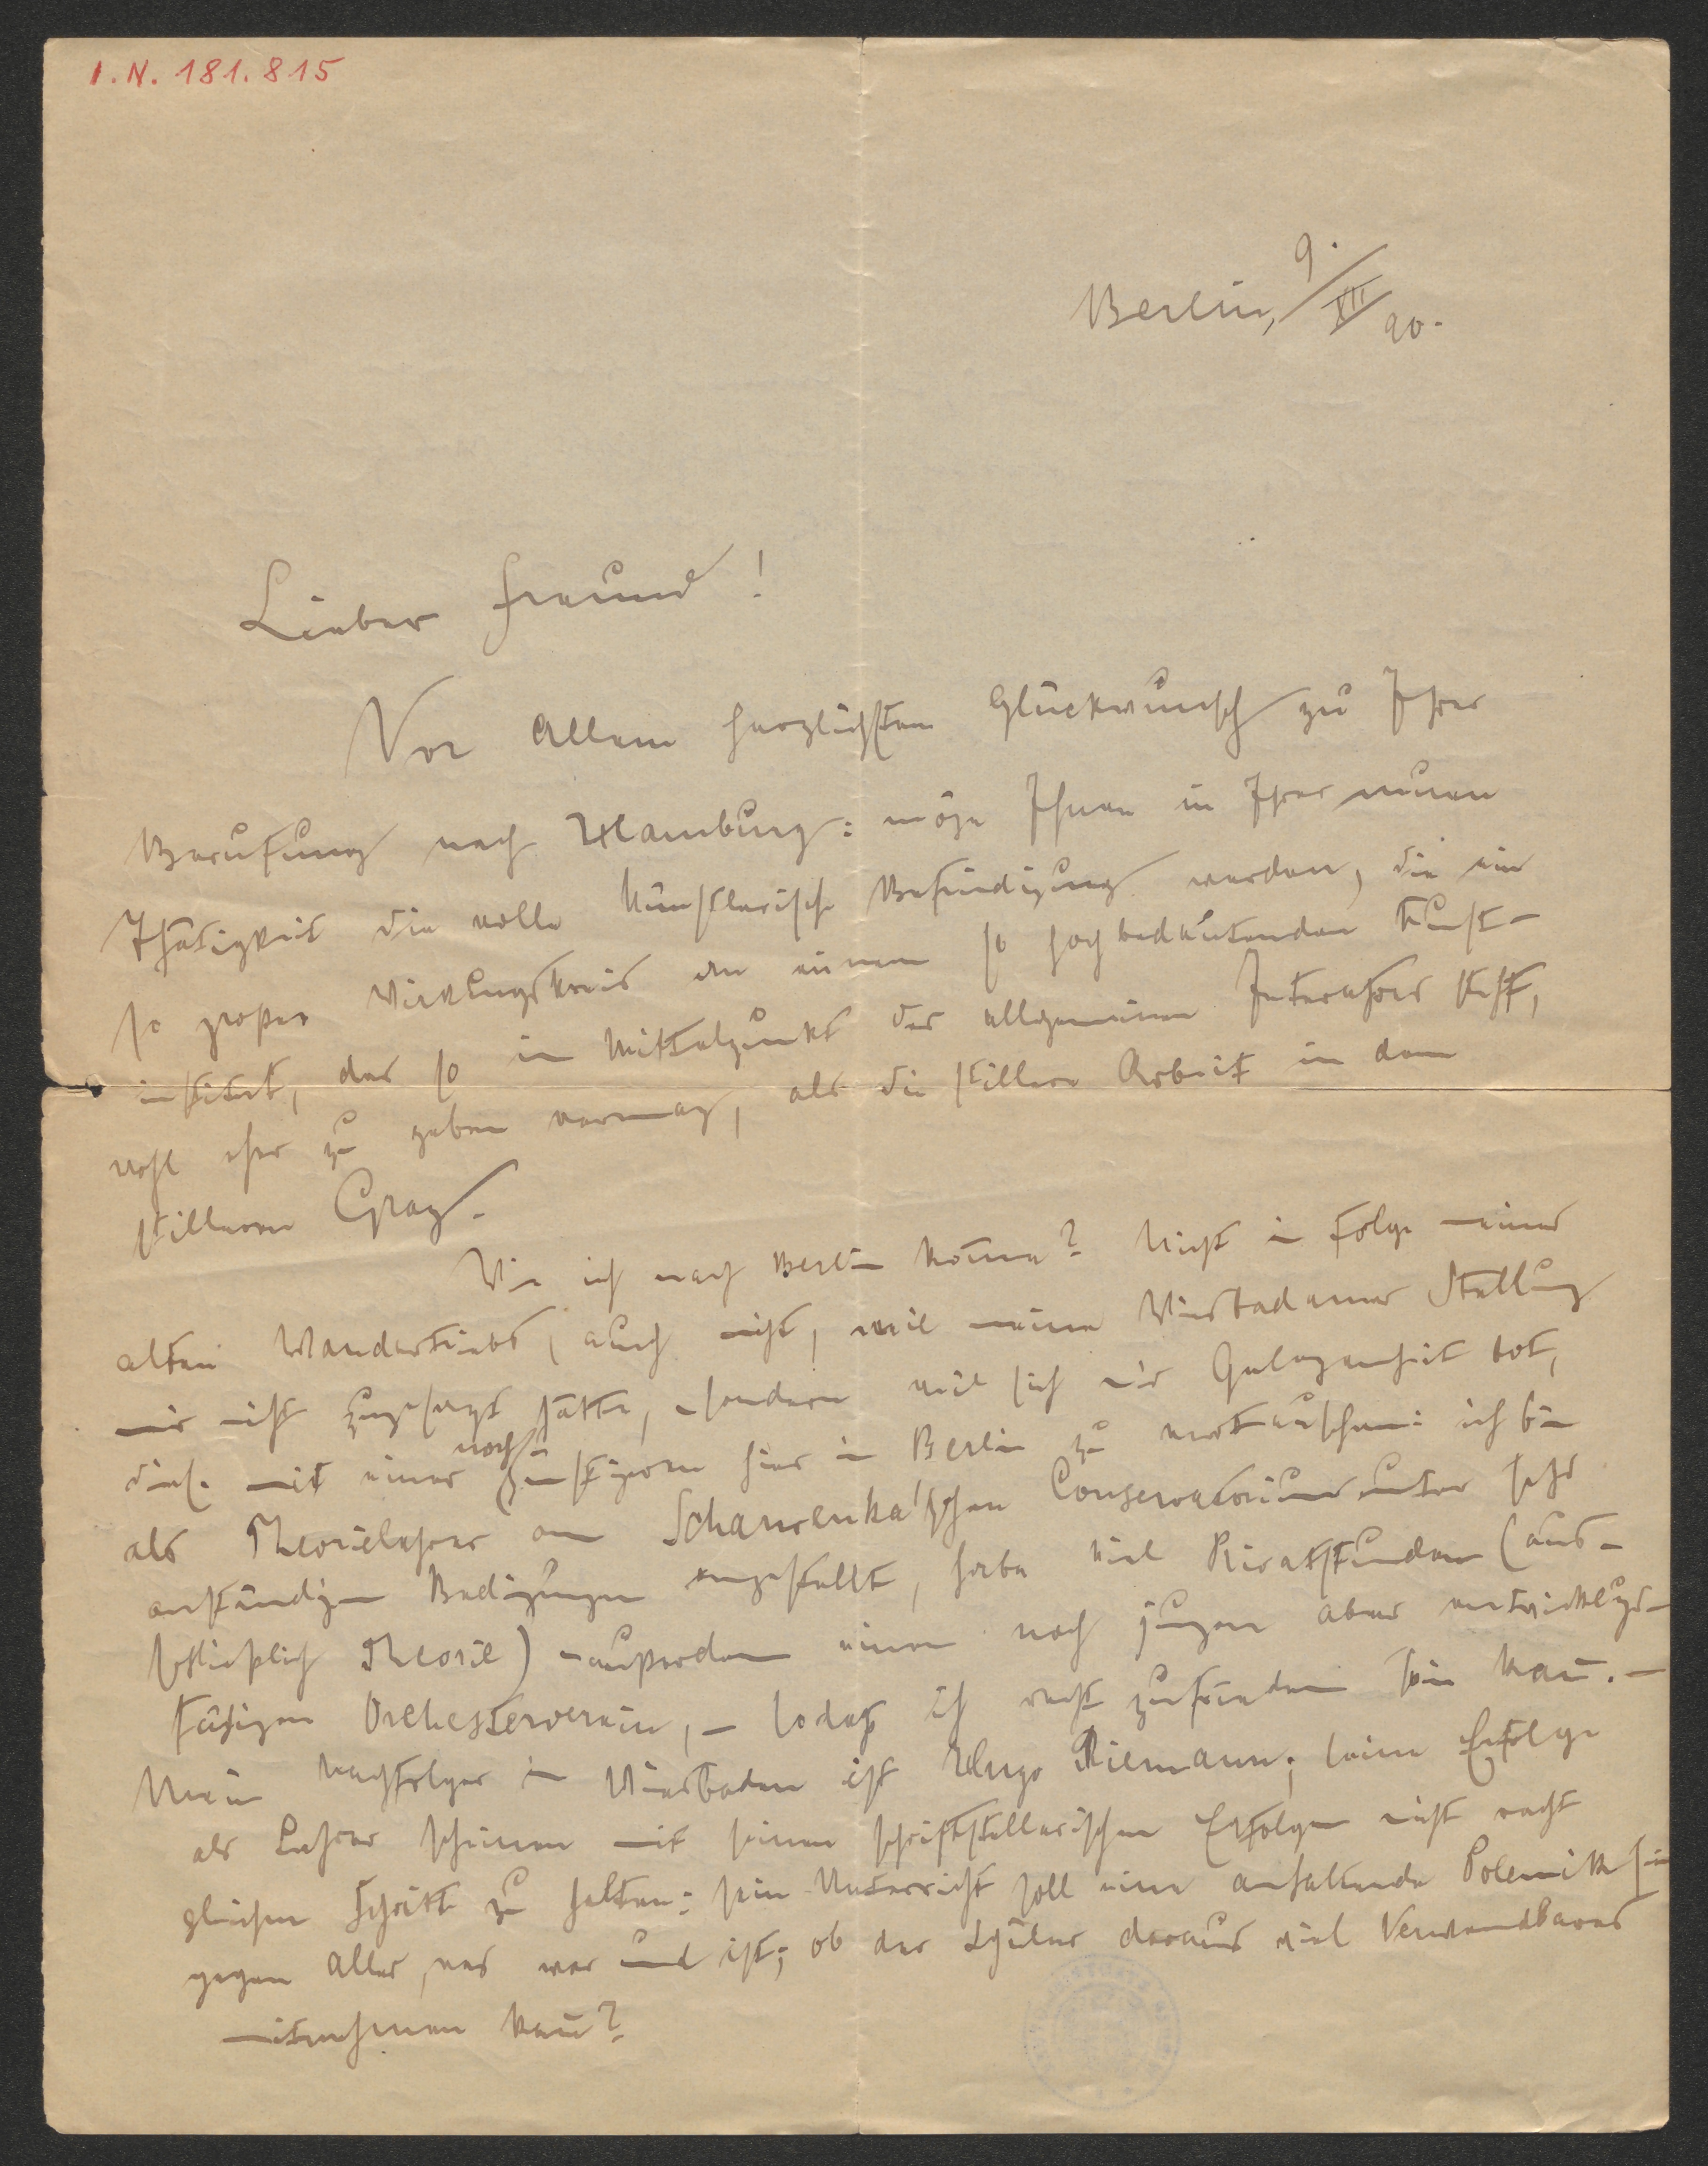 I.N. 181.815
Berlin, 9./XII 90.
Lieber Freund!
Vor Allem herzlichsten Glückwunsch zu Ihrer
Berufung nach Hamburg: möge Ihnen in Ihrer neuen
Thätigkeit die volle künstlerische Befriedigung werden, die ein
so großer Wirkungskreis an einem so hochbedeutenden Kunst-
institut, das so im Mittelpunkt des allgemeinen Interesses steht,
wohl eher zu geben vermag, als die stillere Arbeit in dem
stilleren Graz.
Wie ich nach Berlin komme? Nicht in Folge meines
alten Wandertriebs, auch nicht, weil meine Wiesbadener Stellung
mir nicht zugesagt hätte, sondern weil sich mir Gelegenheit bot,
diese mit einer noch günstigeren hier in Berlin zu vertauschen: ich bin
als Theorielehrer am Scharwenka'schen Conservatorium unter sehr
anständigen Bedingungen angestellt, habe viel Privatstunden (aus-
schließlich Theorie) – außerdem einen noch jungen aber entwicklungs-
fähigen Orchesterverein, – sodaß ich recht zufrieden sein kann. –
Mein Nachfolger in Wiesbaden ist Hugo Riemann; seine Erfolge
als Lehrer scheinen mit seinen schriftstellerischen Erfolgen nicht recht
gleichen Schritt zu halten: sein Unterricht soll eine anhaltende Polemik sein
gegen Alles, was war und ist; ob der Schüler daraus viel Verwendbares
mitnehmen kann?